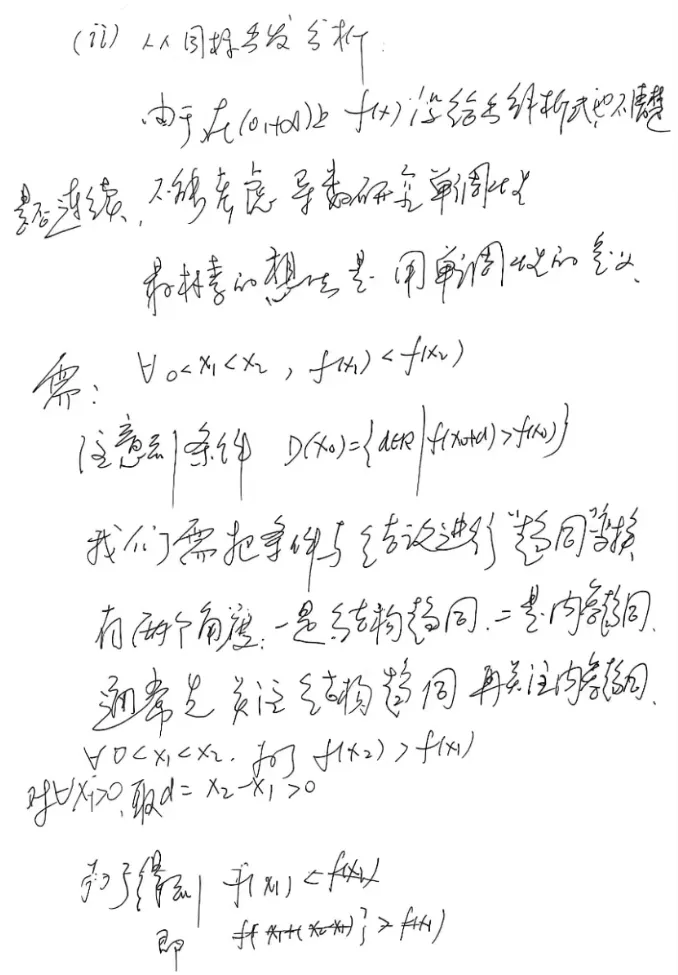 (ii) 从目标出发分析.
由于在(0,+∞)上 f(x)没给出解析式也不清楚
是否连续, 不能考虑导数研究单调性
最朴素的想法是用单调性的定义.
需: ∀ 0<x₁<x₂ , f(x₁)<f(x₂)
注意到条件 D(x₀)={d∈R|f(x₀+d)>f(x₀)}
我们需把条件与结论进行"趋同"变换
有两个角度: 一是结构趋同. 二是内容趋同.
通常先关注结构趋同 再关注内容趋同.
∀ 0<x₁<x₂. f(x₂)>f(x₁)
对∀x₁>0, 取d=x₂-x₁>0
为了得到 f(x₁)<f(x₂)
即 f[x₁+(x₂-x₁)]>f(x₁)